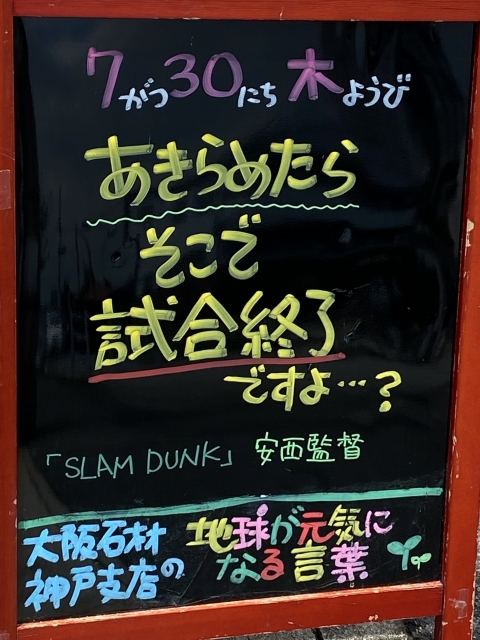 7がつ30にち木ようび
あきらめたら
そこで
試合終了
ですよ…?
「SLAM DUNK」 安西監督
大阪石材
神戸支店の
地球が元気に
なる言葉